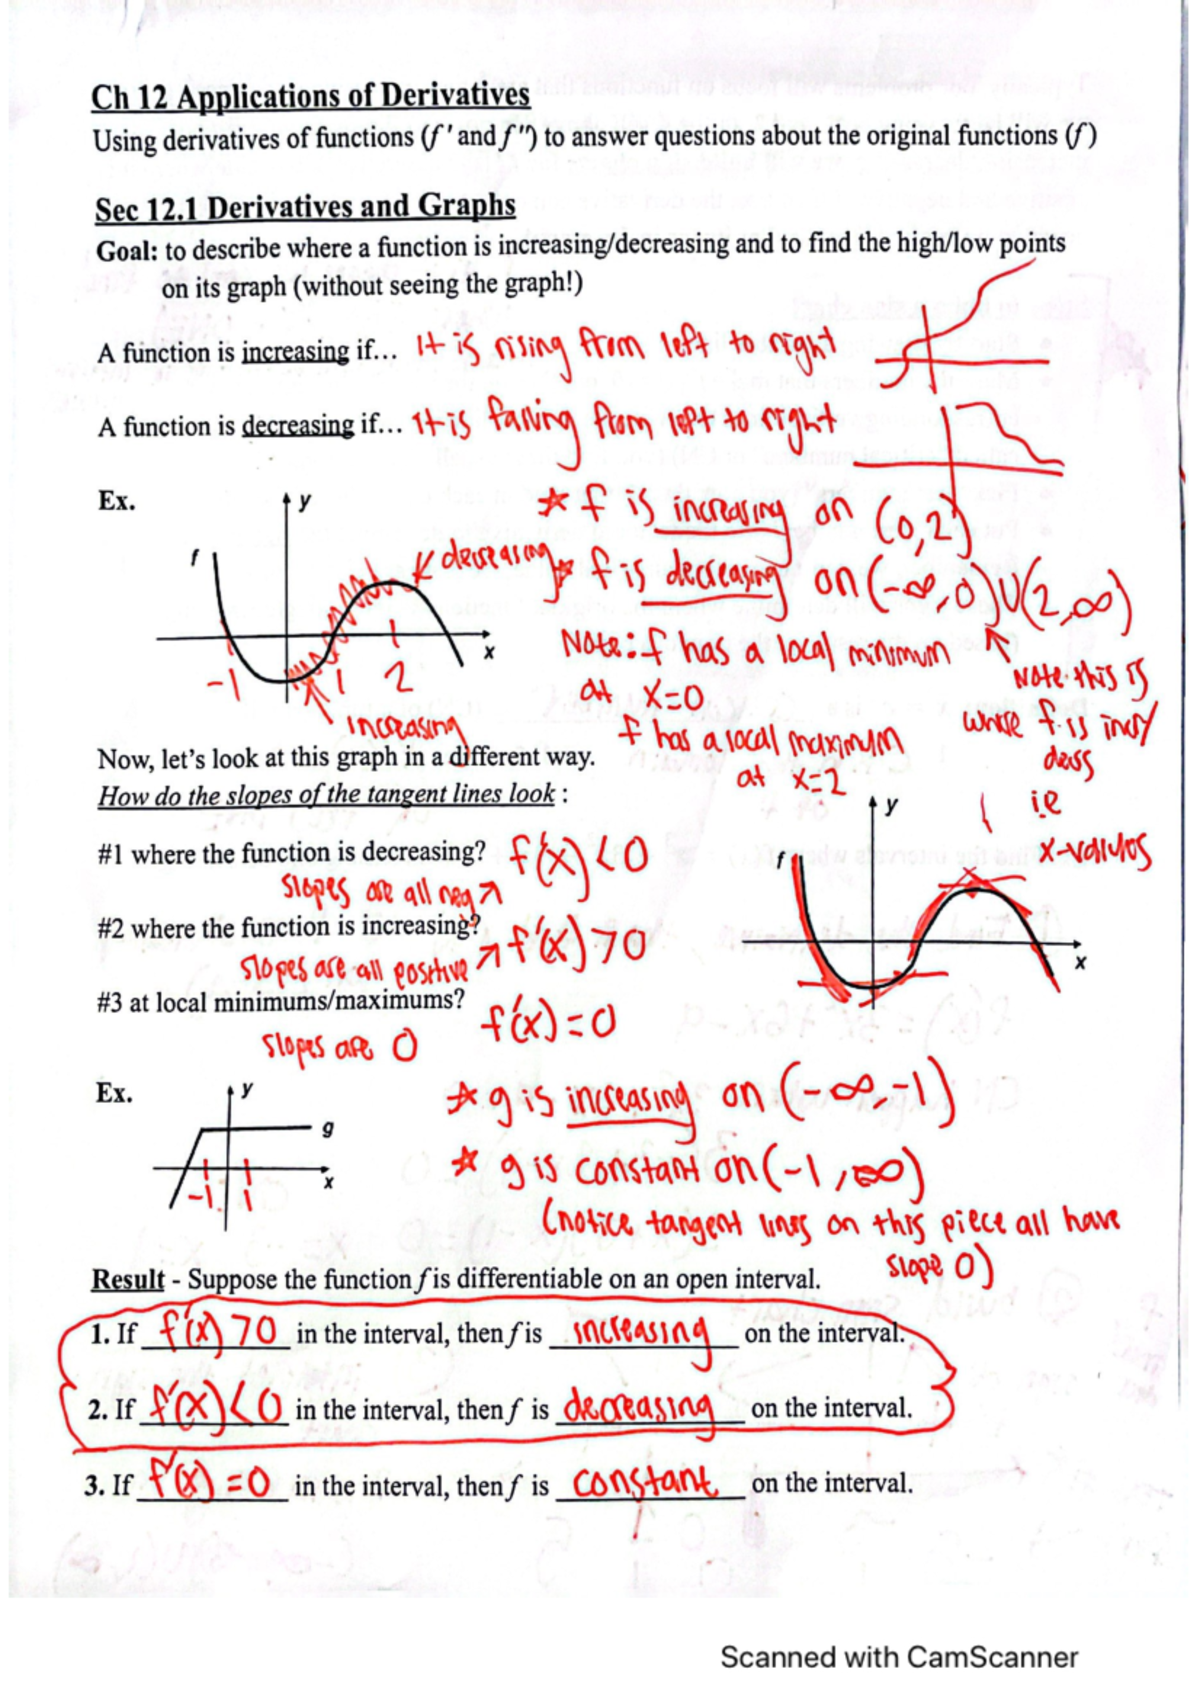 Ch 12 Applications of Derivatives
Using derivatives of functions (f ' and f ") to answer questions about the original functions (f)
Sec 12.1 Derivatives and Graphs
Goal: to describe where a function is increasing/decreasing and to find the high/low points
on its graph (without seeing the graph!)
A function is increasing if... It is rising from left to right
A function is decreasing if... It is falling from left to right
Ex.
y
f
x
-1 1 2
increasing
decreasing
☆ f is increasing on (0,2)
☆ f is decreasing on (-∞,0)∪(2,∞)
Note: f has a local minimum
at x=0
f has a local maximum
at x=2
Note: this is
where f is incr/
decr
i.e
x-values
Now, let's look at this graph in a different way.
How do the slopes of the tangent lines look :
#1 where the function is decreasing? f'(x) < 0
slopes are all neg ↗
#2 where the function is increasing? f'(x) > 0
slopes are all positive ↗
#3 at local minimums/maximums? f'(x) = 0
slopes are 0
y
f
x
Ex.
y
g
x
-1 1
☆ g is increasing on (-∞,-1)
☆ g is constant on (-1,∞)
(notice tangent lines on this piece all have
slope 0)
Result - Suppose the function f is differentiable on an open interval.
1. If f'(x) > 0 in the interval, then f is increasing on the interval.
2. If f'(x) < 0 in the interval, then f is decreasing on the interval.
3. If f'(x) = 0 in the interval, then f is constant on the interval.
Scanned with CamScanner